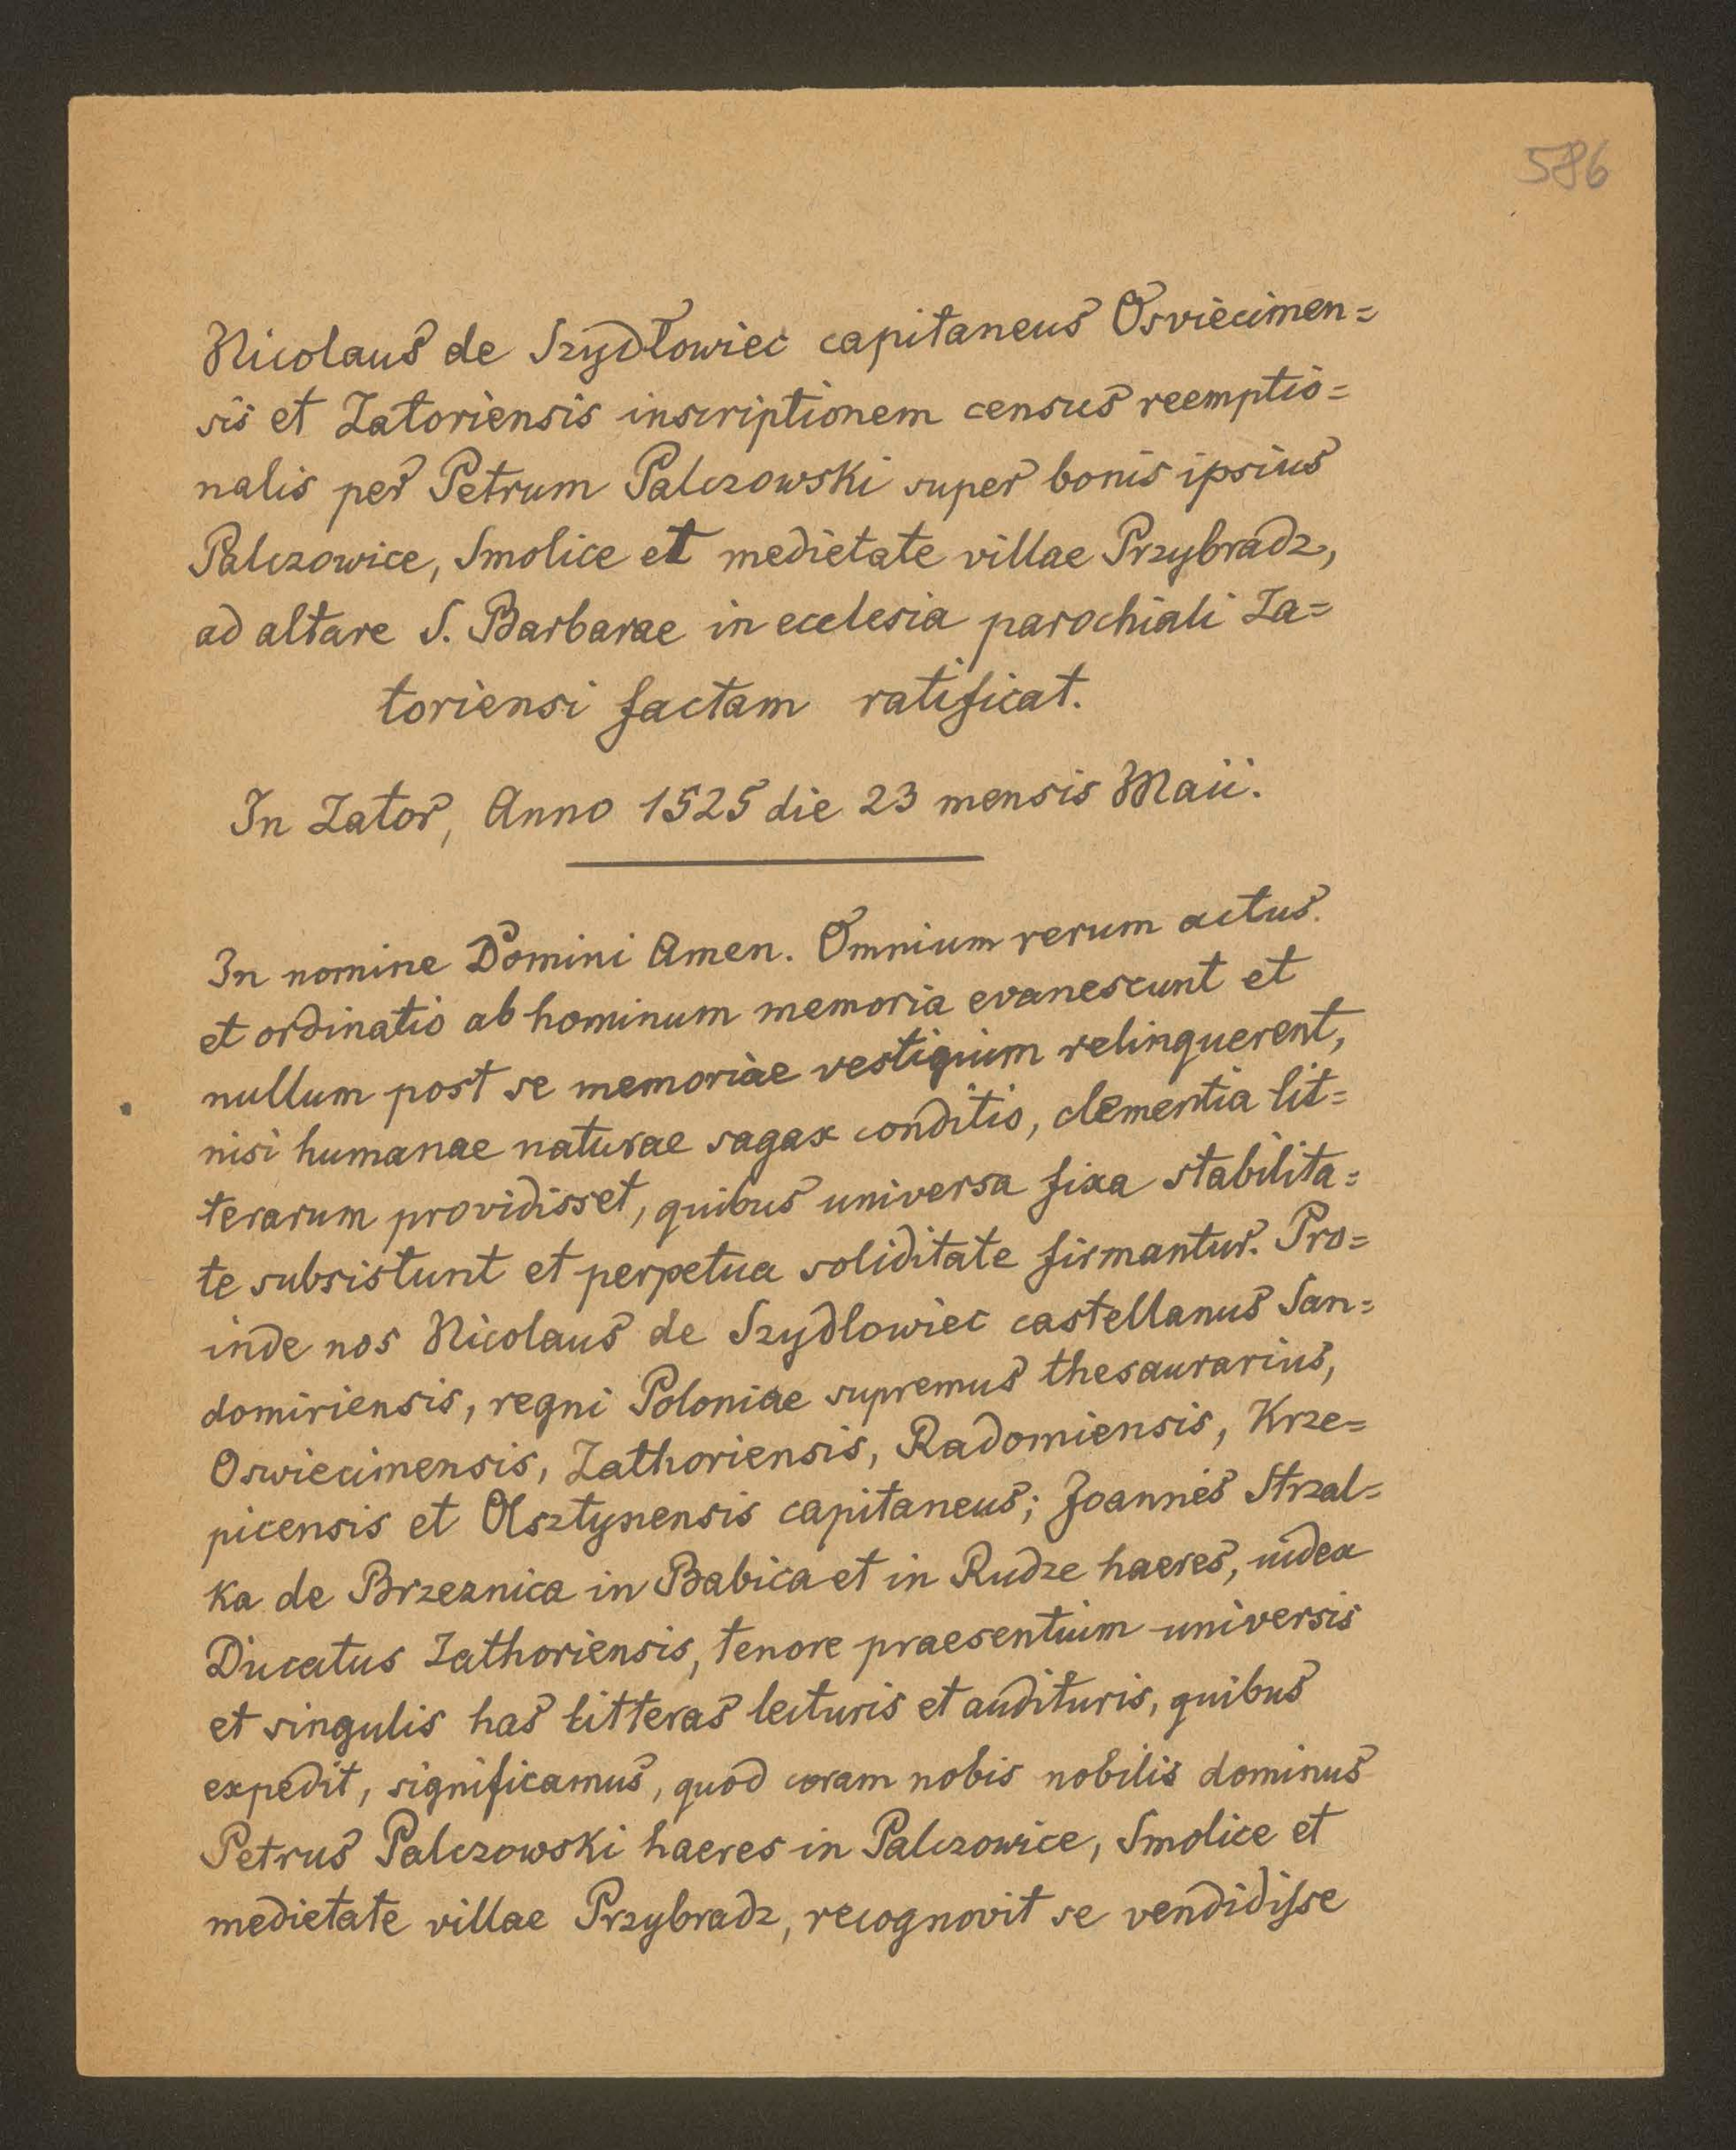 586
Nicolaus de Szydłowiec capitaneus Osviecimen=
sis et Zatoriensis inscriptionem census reemptio=
nalis per Petrum Palczowski super bonis ipsius
Palczowice, Smolice et medietate villae Przybradz,
ad altare S. Barbarae in ecclesia parochiali Za=
toriensi factam ratificat.
In Zator, Anno 1525 die 23 mensis Maii.
In nomine Domini Amen. Omnium rerum actus
et ordinatio ab hominum memoria evanescunt et
nullum post se memoriae vestigium relinquerent,
nisi humanae naturae sagax conditio, clementia lit=
terarum providisset, quibus universa fixa stabilita=
te subsistunt et perpetua soliditate firmantur. Pro=
inde nos Nicolaus de Szydlowiec castellanus San=
domiriensis, regni Poloniae supremus thesaurarius,
Oswiecimensis, Zathoriensis, Radomiensis, Krze=
picensis et Olsztynensis capitaneus; Joannes Strzal=
ka de Brzeznica in Babica et in Rudze haeres, iudex
Ducatus Zathoriensis, tenore praesentium universis
et singulis has litteras lecturis et audituris, quibus
expedit, significamus, quod coram nobis nobilis dominus
Petrus Palczowski haeres in Palczowice, Smolice et
medietate villae Przybradz, recognovit se vendidisse